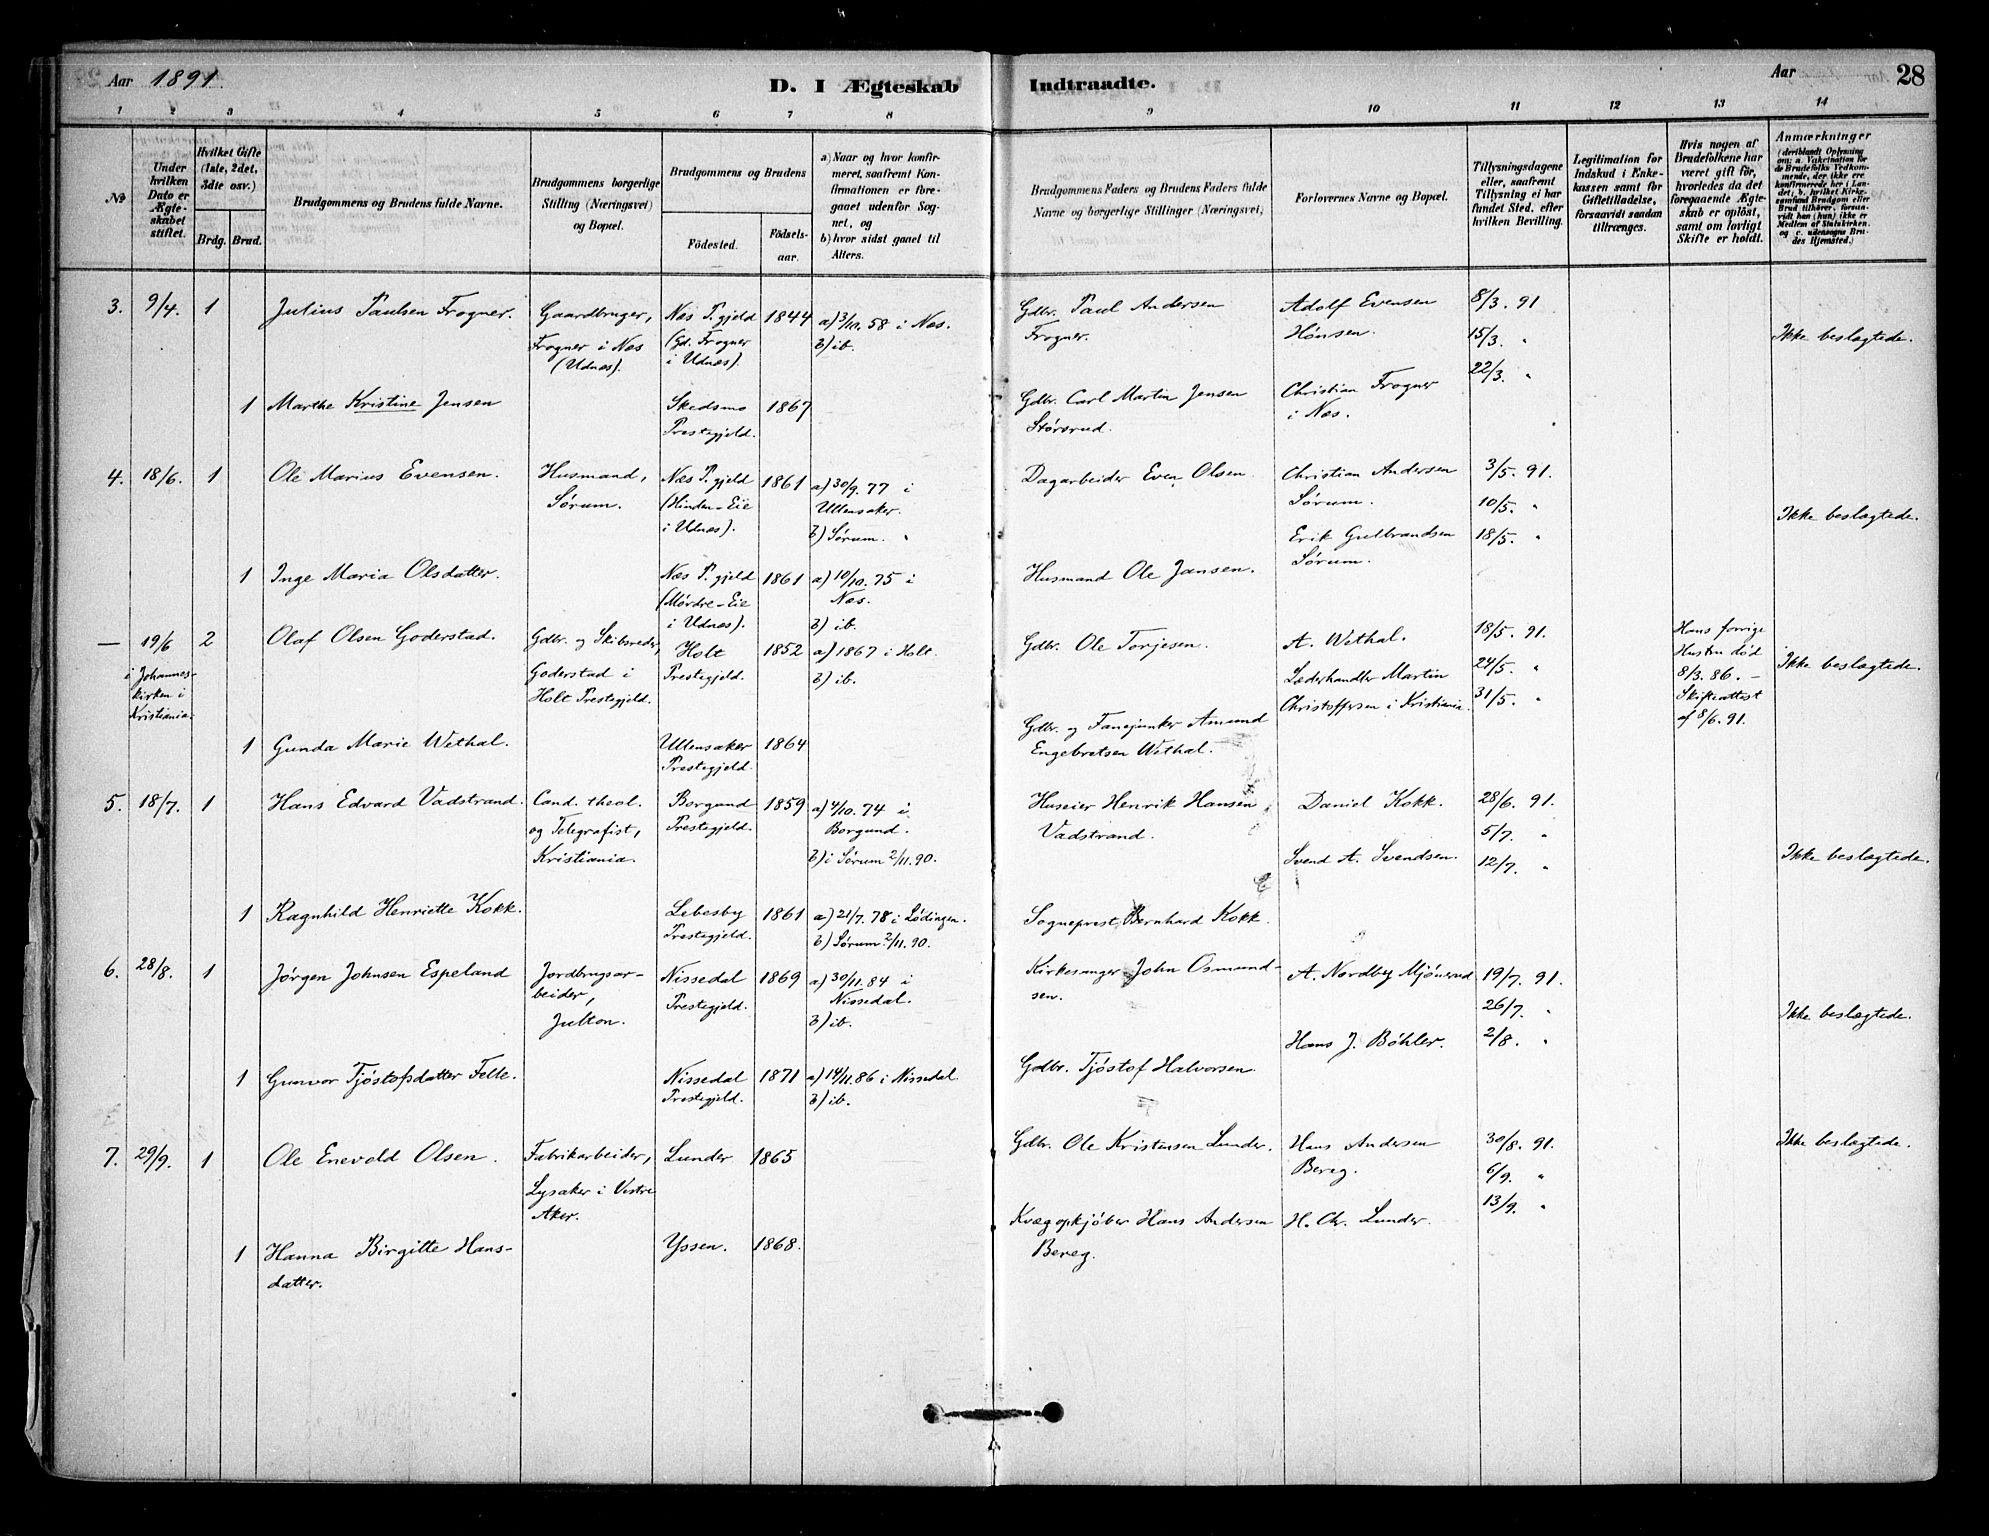 Aar 1891
D. I Ægteskab Indtraadte.
Aar 28
1 2 3 4 5 6 7 8 9 10 11 12 13 14
No
Under hvilken Dato er Ægteskabet stiftet.
Hvilket Gifte (1ste, 2det, 3die osv.)
Brdg. Brud.
Brudgommens og Brudens fulde Navne.
Brudgommens borgerlige Stilling (Næringsvei) og Bopæl.
Brudgommens og Brudens
Födested.
Födselsaar.
a) Naar og hvor konfirmeret, saafremt Konfirmationen er foregaaet udenfor Sognet, og
b) hvor sidst gaaet til Alters.
Brudgommens Faders og Brudens Faders fulde Navne og borgerlige Stillinger (Næringsvei)
Forlovernes Navne og Bopæl.
Tillysningsdagene eller, saafremt Tillysning ei har fundet Sted, efter hvilken Bevilling.
Legitimation for Indskud i Enkekassen samt for Giftetilladelse, forsaavidt saadan tiltrænges.
Hvis nogen af Brudefolkene har været gift för, hvorledes da det foregaaende Ægteskab er oplöst, samt om lovligt Skifte er holdt.
Anmærkninger
(deriblandt Oplysning om: a. Vakcination for de Brudefolks Vedkommende, der ikke ere konfirmerede her i Landet; b. hvilket Kirkesamfund Brudgom eller Brud tilhörer, forsaavidt han (hun) ikke er Medlem af Statskirken, og c. udensogns Brudes Hjemsted.)
3. 9/4. 1 Julius Paulsen Frogner. Gaardbruger, Frogner i Næs (Udnæs). Næs P.gjeld (Gd. Frogner i Udnæs). 1844 a) 3/10. 58 i Næs. b) ib. Gdbr. Paul Andersen Frogner. Adolf Evensen Hønsen. 8/3. 91. 15/3. " 22/3. " Ikke beslægtede.
1 Marthe Kristine Jensen Skedsmo Prestegjeld. 1867 Gdbr. Carl Martin Jensen Störsrud. Christian Frogner i Næs.
4. 18/6. 1 Ole Marius Evensen. Husmand, Sørum. Næs P.gjeld (Hinden-Eie i Udnæs). 1861 a) 30/9. 77 i Ullensaker. b) Sørum. " Dagarbeider Even Olsen. Christian Andersen Sørum. 3/5. 91. 10/5. " 18/5. " Ikke beslægtede.
1 Inge Maria Olsdatter. Næs P.gjeld (Mørdre-Eie i Udnæs). 1861 a) 10/10. 75 i Næs. b) ib. Husmand Ole Jansen. Erik Gulbrandsen Sørum.
— 19/6 i Johannes-kirken i Kristiania. 2 Olaf Olsen Goderstad. Gdbr. og Skibsreder, Goderstad i Holt Prestegjeld. Holt Prestegjeld. 1852 a) 1867 i Holt. b) ib. Gdbr. Ole Torjesen. A. Wethal. Læderhandler Martin Christoffersen i Kristiania. 18/5. 91. 24/5. " 31/5. " Hans forrige Hustru död 8/3. 86. – Skifteattest af 8/6. 91. Ikke beslægtede.
1 Gunda Marie Wethal. Ullensaker Prestegjeld. 1864 Gdbr. og Fanejunker Amund Engebretsen Wethal.
5. 18/7. 1 Hans Edvard Vadstrand. Cand. theol. og Telegrafist, Kristiania. Borgund Prestegjeld. 1859 a) 4/10. 74 i Borgund. b) i Sørum 2/11. 90. Huseier Henrik Hansen Vadstrand. Daniel Kokk. 28/6. 91. 5/7. " 12/7. " Ikke beslægtede.
1 Ragnhild Henriette Kokk. Lebesby Prestegjeld. 1861 a) 21/7. 78 i Lödingen. b) Sørum 2/11. 90. Sogneprest Bernhard Kokk. Svend A. Svendsen.
6. 28/8. 1 Jörgen Johnsen Espeland Jordbrugsarbeider, Julton. Nissedal Prestegjeld. 1869 a) 30/11. 84 i Nissedal. b) ib. Kirkesanger John Osmundsen. A. Nordby Mjönerud 19/7. 91. 26/7. " 2/8. " Ikke beslægtede.
1 Gunvor Tjöstofsdatter Felle. Nissedal Prestegjeld. 1871 a) 14/11. 86 i Nissedal. b) ib. Gdbr. Tjöstof Halvorsen. Hans J. Böhler.
7. 29/9. 1 Ole Enevold Olsen. Fabrikarbeider, Lysaker i Vestre Aker. Lunder 1865 Gdbr. Ole Kristensen Lunder. Hans Andersen Bereg. 30/8. 91. 6/9. " 13/9. " Ikke beslægtede.
1 Hanna Birgitte Hansdatter. Yssen. 1868. Kvægopkjøber Hans Andersen Bereg. H. Chr. Lunder.